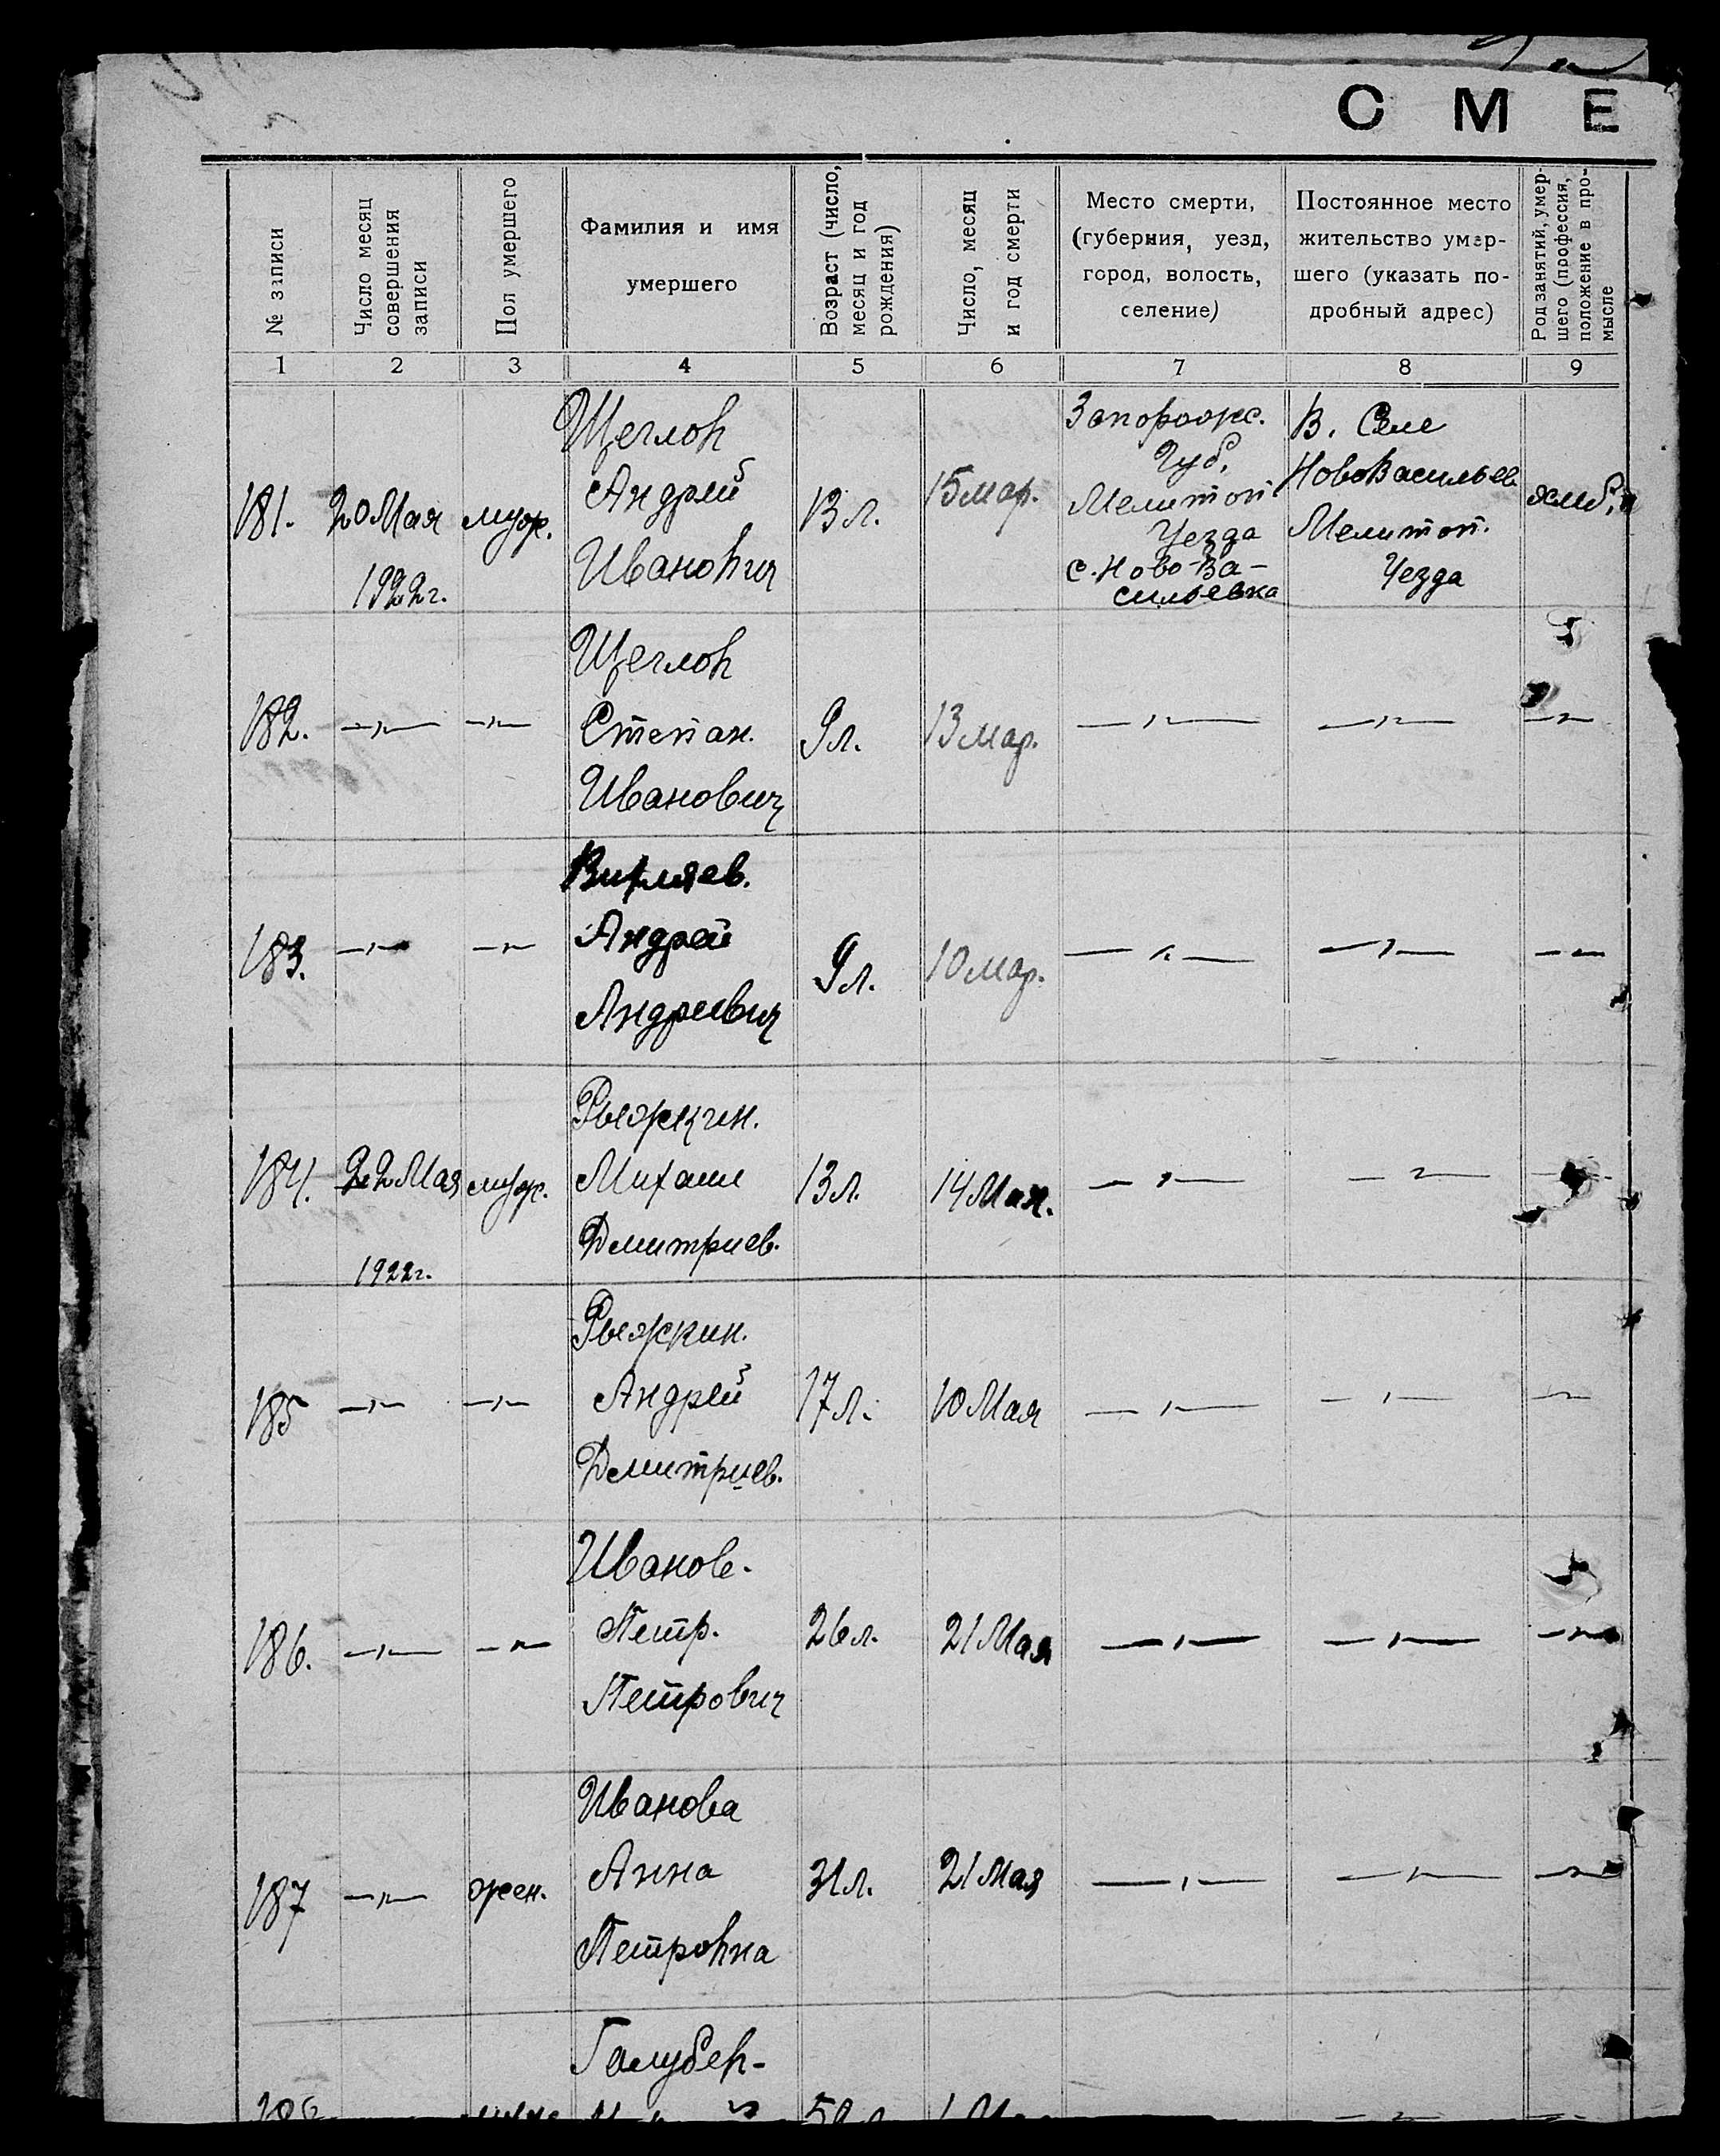 С М Е
№ записи
Число месяц
совершения
записи
Пол умершего
Фамилия и имя
умершего
Возраст (число,
месяц и год
рождения)
Число, месяц
и год смерти
Место смерти,
(губерния, уезд,
город, волость,
селение)
Постоянное место
жительство умер-
шего (указать по-
дробный адрес)
Род занятий, умер-
шего (профессия,
положение в про-
мысле
1 2 3 4 5 6 7 8 9
181.
20 Мая
1922 г.
муж.
Щеглов
Андрей
Иванович
13 л.
15 мар.
Запорожс.
Губ.
Мелитоп
Уезда
с. Ново-Ва-
сильевка
В. Селе
НовоВасильев
Мелитоп.
Уезда
182.
—〃—
—〃—
Щеглов
Степан.
Иванович
9 л.
13 мар.
—〃—
—〃—
—〃—
183.
—〃—
—〃—
Андрей
Андреевич
9 л.
10 мар.
—〃—
—〃—
—〃—
184.
22 Мая
1922 г.
муж.
Рыжкин.
Михаил
Дмитриев.
13 л.
14 Мая.
—〃—
—〃—
185
—〃—
—〃—
Рыжкин.
Андрей
Дмитриев.
17 л.
10 Мая
—〃—
—〃—
—〃—
186.
—〃—
—〃—
Иванов.
Петр.
Петрович
26 л.
21 Мая
—〃—
—〃—
—〃—
187
—〃—
жен.
Иванова
Анна
Петровна
31 л.
21 Мая
—〃—
—〃—
—〃—
Голубев-